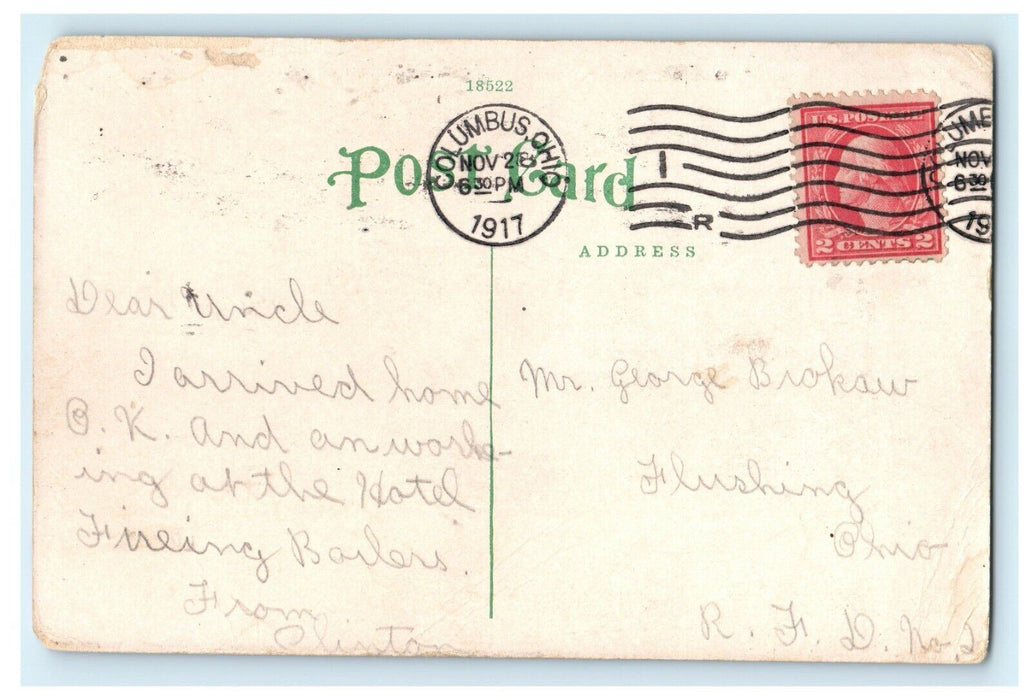 18522
Post Card
COLUMBUS, OHIO.
NOV 28
6 30 PM
1917
I
R
U.S. POSTAGE
2 CENTS 2
UMB
NOV
6 30
19
ADDRESS
Dear Uncle
I arrived home
O. K. and an work-
ing at the Hotel
Fireing Boilers.
From
Clinton
Mr. George Brokaw
Flushing
Ohio
R. F. D. No. 2